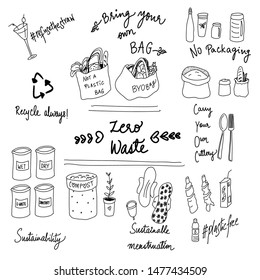 #refusethestraw
Bring your
own
BAG
No Packaging
NOT A
PLASTIC
BAG
BYOBAG
Recycle always!
Zero
Waste
Carry
Your
Own
Cutlery
WET
DRY
E-WASTE
SANITARY
COMPOST
Sustainability
Sustainable
menstruation
#plasticfree
shutterstock.com · 1477434509